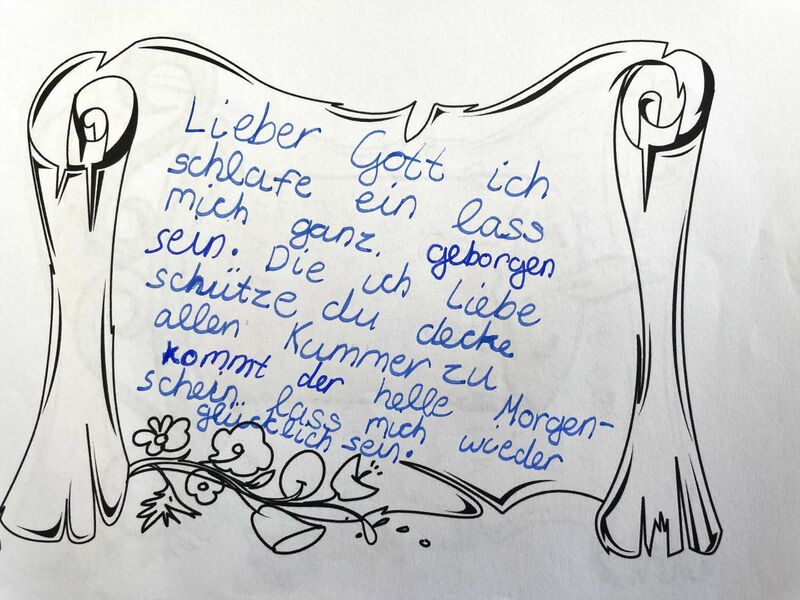 Lieber Gott ich
schlafe ein lass
mich ganz geborgen
sein. Die ich Liebe
schütze du decke
allen Kummer zu
kommt der helle Morgen-
schein lass mich wieder
glücklich sein.